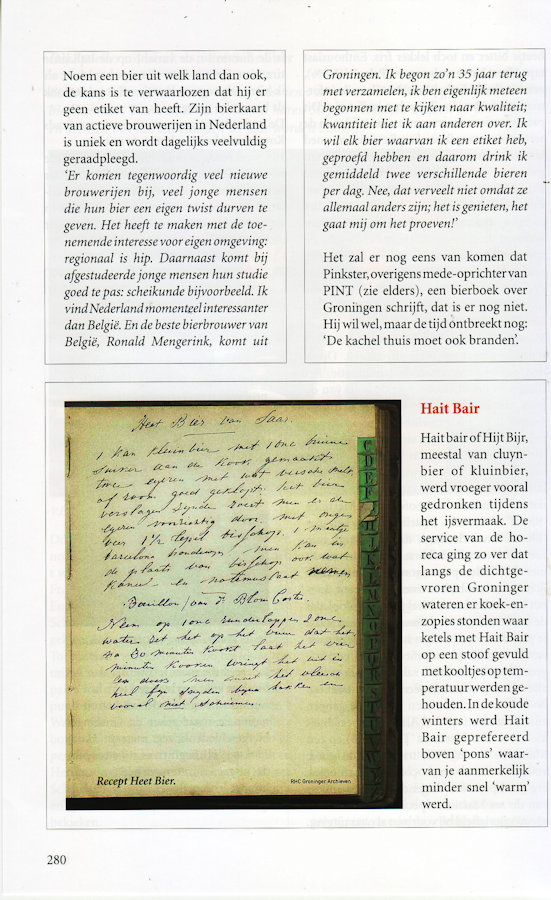 Noem een bier uit welk land dan ook,
de kans is te verwaarlozen dat hij er
geen etiket van heeft. Zijn bierkaart
van actieve brouwerijen in Nederland
is uniek en wordt dagelijks veelvuldig
geraadpleegd.
‘Er komen tegenwoordig veel nieuwe
brouwerijen bij, veel jonge mensen
die hun bier een eigen twist durven te
geven. Het heeft te maken met de toe-
nemende interesse voor eigen omgeving:
regionaal is hip. Daarnaast komt bij
afgestudeerde jonge mensen hun studie
goed te pas: scheikunde bijvoorbeeld. Ik
vind Nederland momenteel interessanter
dan België. En de beste bierbrouwer van
België, Ronald Mengerink, komt uit
Groningen. Ik begon zo’n 35 jaar terug
met verzamelen, ik ben eigenlijk meteen
begonnen met te kijken naar kwaliteit;
kwantiteit liet ik aan anderen over. Ik
wil elk bier waarvan ik een etiket heb,
geproefd hebben en daarom drink ik
gemiddeld twee verschillende bieren
per dag. Nee, dat verveelt niet omdat ze
allemaal anders zijn; het is genieten, het
gaat mij om het proeven!’
Het zal er nog eens van komen dat
Pinkster, overigens mede-oprichter van
PINT (zie elders), een bierboek over
Groningen schrijft, dat is er nog niet.
Hij wil wel, maar de tijd ontbreekt nog:
‘De kachel thuis moet ook branden’.
Heet Bier van Saar.
1 Kan kluinbier met 1 onc bruine
suiker aan de kook gemaakt
twee eijeren met wat versche melk
of room goed geklopt. het bier
van
de plaats van bisschop ook wat
Kaneel en notemuskaat
Bouillon (van
Neem op 1 onc runderlappen 2 onc
water zet het op het vuur dat het
na 30 minuten kookt laat het vier
minuten kooken wringt het uit in
een doek, men moet het vleesch
heel fijn snijden bijna hakken en
vooral niet schuimen.
C
D
E
F
H
I
J
K
L
M
N
O
P
Q
R
S
T
Recept Heet Bier.
RHC Groninger Archieven
Hait Bair
Hait bair of Hijt Bijr,
meestal van cluyn-
bier of kluinbier,
werd vroeger vooral
gedronken tijdens
het ijsvermaak. De
service van de ho-
reca ging zo ver dat
langs de dichtge-
vroren Groninger
wateren er koek-en-
zopies stonden waar
ketels met Hait Bair
op een stoof gevuld
met kooltjes op tem-
peratuur werden ge-
houden. In de koude
winters werd Hait
Bair geprefereerd
boven ‘pons’ waar-
van je aanmerkelijk
minder snel ‘warm’
werd.
280